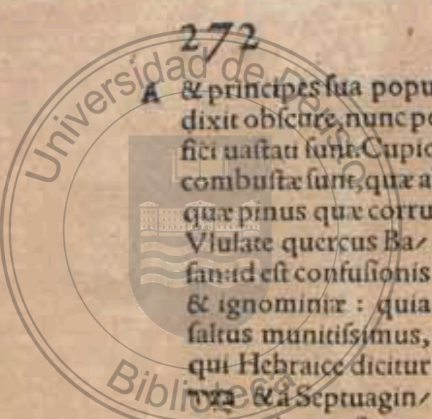 272
A & principes sua popu
dixit obscure, nunc pe
fici uastati sunt. Cupio
combustæ sunt, quæ a
quæ pinus quæ corru
Vlulate quercus Ba/
san: id est confusionis
& ignominiæ : quia
saltus munitissimus,
qui Hebraice dicitur
& a Septuagin/
Universidad de
Biblioteca